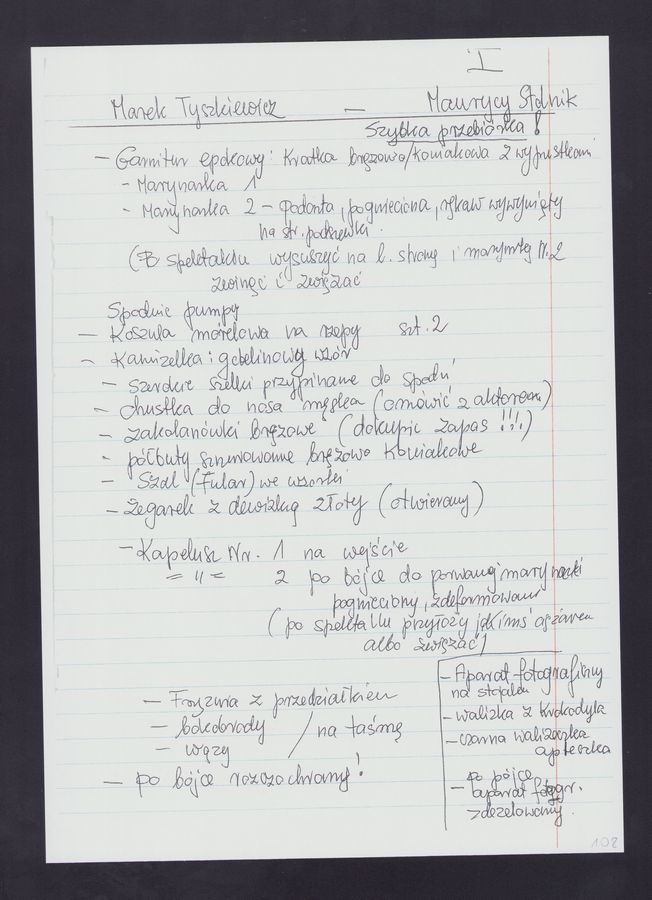 I
Marek Tyszkiewicz — Maurycy Stolnik
Szybka przebiórka!
- Garnitur epokowy: Kratka brązowo/koniakowa z wypustkami
- Marynarka 1
- Marynarka 2 - Podarta, pognieciona, rękaw wywynięty
na str. podszewki.
(Po spektaklu wysuszyć na l. strony i marynarkę N. 2
zwinąć i związać
Spodnie pumpy
- Koszula morelowa na rzepy szt. 2
- Kamizelka: gobelinowy wzór
- Szerokie szelki przypinane do spodni
- chustka do nosa męska (omówić z aktorem)
- zakolanówki brązowe (dokupić zapas !!!)
- półbuty sznurowane brązowo koniakowe
- Szal (Fular) we wzorki
- zegarek z dewizką złoty (otwierany)
- Kapelusz Nr. 1 na wejście
= " = 2 po bójce do porwanej marynarki
pognieciony, zdeformowany
(po spektaklu przyłoży jakimś ciężarem
albo związać)
- Fryzura z przedziałkiem
- bokobrody / na taśmę
- wąsy
- po bójce rozczochrany!
- Aparat fotograficzny
na stojaku
- walizka z krokodyla
- czarna walizeczka
apteczka
po bójce
- aparat fotogr.
zdezelowany.
102